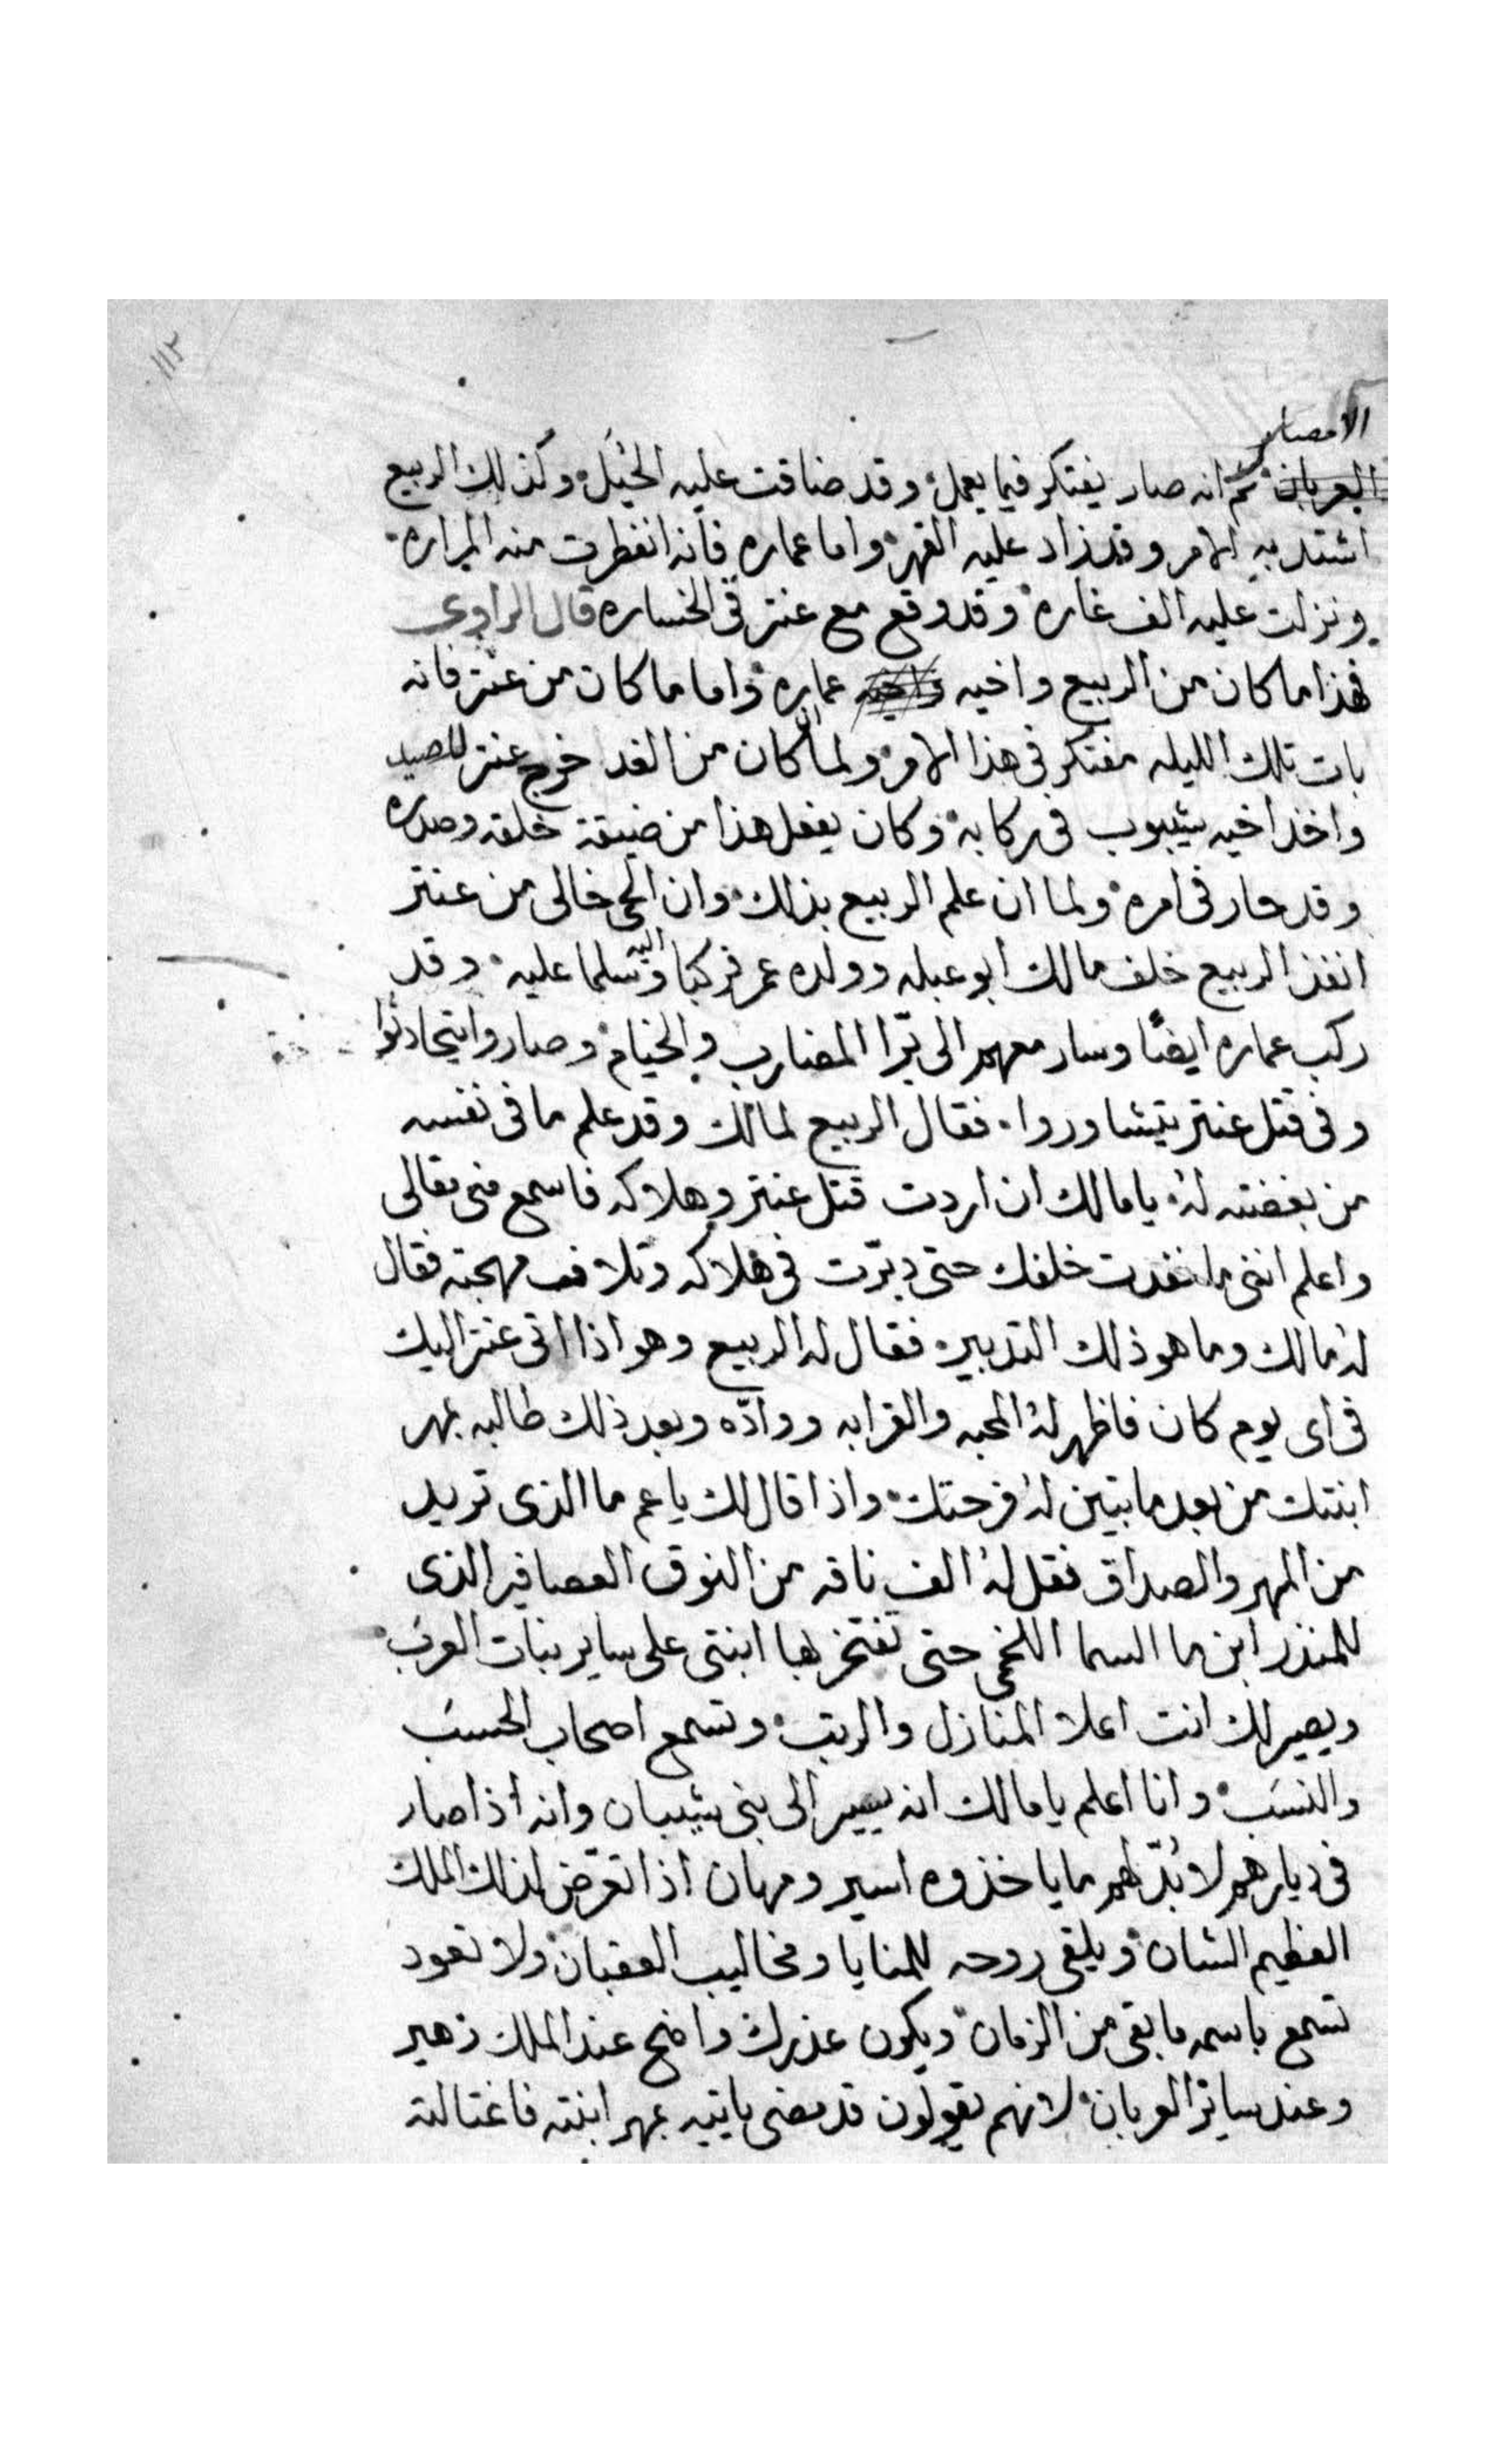 ١١٢
الامصار
العربان ثم انه صار يفتكر فيما يعمل وقد ضاقت عليه الحيل وكذلك الربيع
اشتد به الامر وقد زاد عليه القهر واما عماره فانه انفطرت منه المراره
ونزلت عليه الف غاره وقد وقع مع عنتر في الخساره قال الراوي
فهذا ما كان من الربيع واخيه واخيه عماره واما ما كان من عنتر فانه
بات تلك الليله مفتكر في هذا الامر ولما ان كان من الغد خرج عنتر للصيد
واخذ اخيه شيبوب في ركابه وكان يفعل هذا من ضيقة خلقه وصدره
وقد حار في امره ولما ان علم الربيع بذلك وان الحي خالى من عنتر
انفذ الربيع خلف مالك ابو عبله وولده عمر فركبا اليه وسلما عليه وقد
ركب عماره ايضًا وسار معهم الى برّا المضارب والخيام وصاروا يتحادثوا
وفي قتل عنتر يتشاوروا فقال الربيع لمالك وقد علم ما في نفسه
من بغضته له يا مالك ان اردت قتل عنتر وهلاكه فاسمع مني مقالى
واعلم انني ما نفدت خلفك حتى دبّرت في هلاكه وتلاف مهجته فقال
له مالك وما هو ذلك التدبير فقال له الربيع وهو اذا اتى عنتر اليك
في اى يوم كان فاظهر له المحبه والقرابه ووادّه وبعد ذلك طالبه بمهر
ابنتك من بعد ما تبين له فرحتك واذا قال لك يا عم ما الذى تريد
من المهر والصداق فقل له الف ناقه من النوق العصافير الذى
للمنذر ابن ما السما اللخمي حتى تفتخر بها ابنتى على ساير بنات العرب
ويصير لك انت اعلا المنازل والرتب وتسمع اصحاب الحسب
والنسب وانا اعلم يا مالك انه يسير الى بنى شيبان وانه اذا صار
في ديارهم لا بُدّ لهم ما ياخذوه اسير ومهان اذا تعرّض لذلك الملك
العظيم الشان ويلقى روحه للمنايا ومخاليب العقبان ولا تعود
تسمع باسمه ما بقى من الزمان ويكون عذرك واضح عند الملك زهير
وعند ساير العربان لانهم يقولون قد مضى ياتيه بمهر ابنته فاغتالته